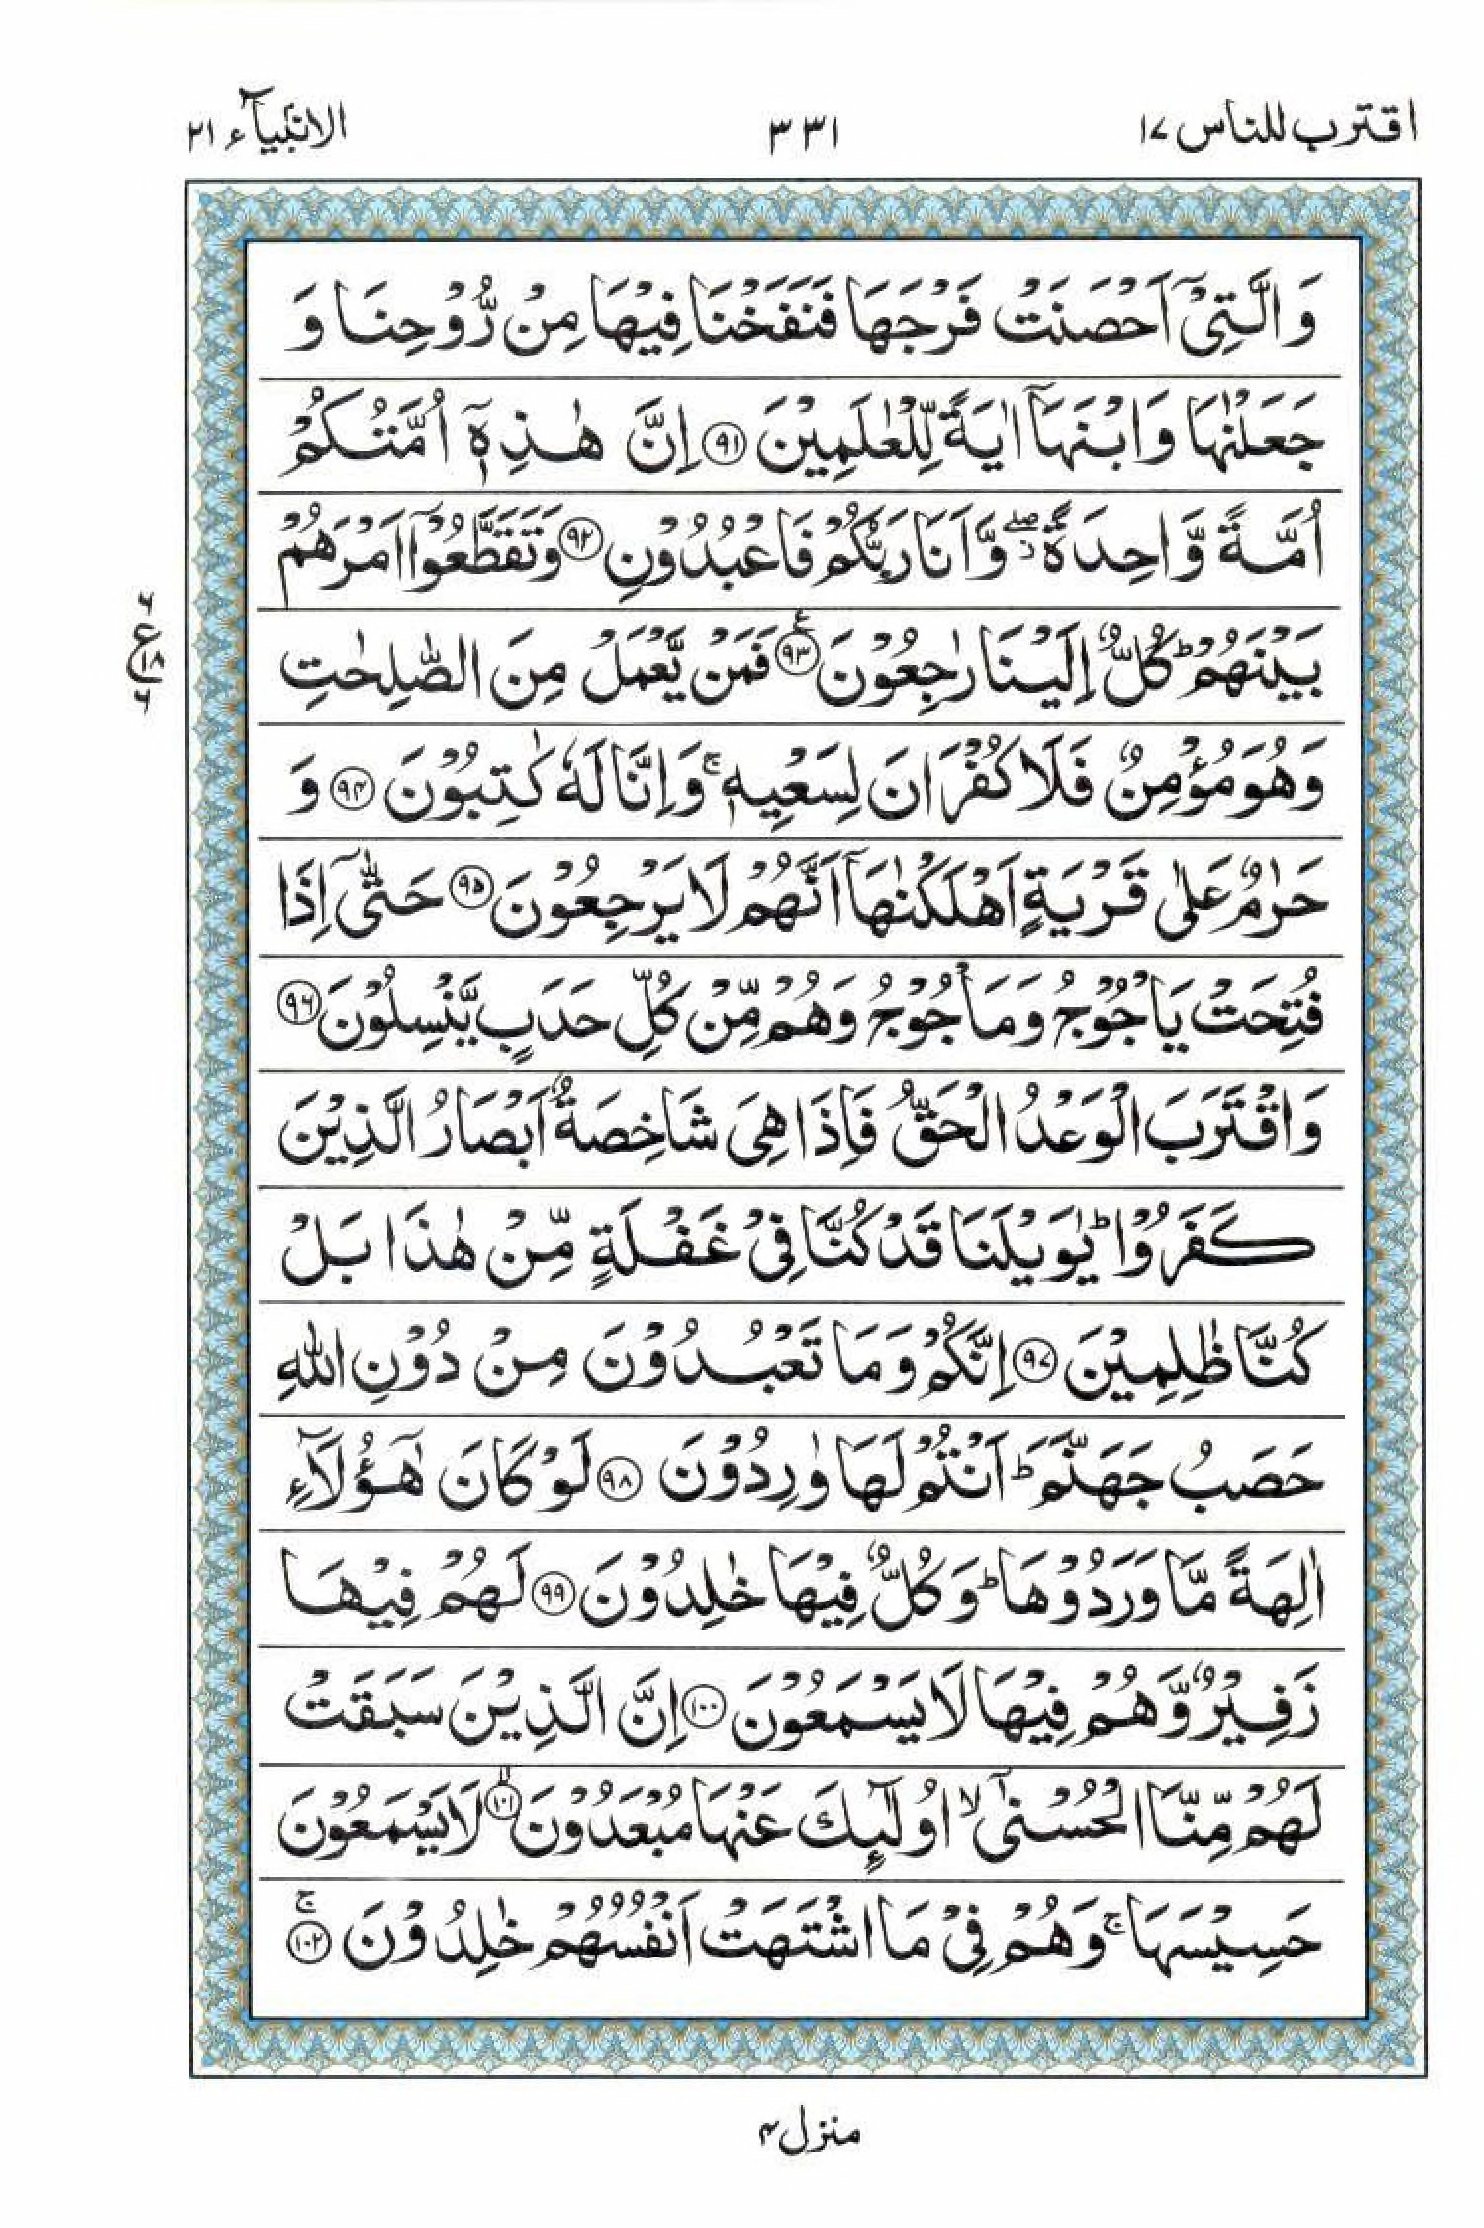 اقترب للناس ١٧
٣٣١
الانبیآء ٢١
وَالَّتِیْۤ اَحْصَنَتْ فَرْجَهَا فَنَفَخْنَا فِیْهَا مِنْ رُّوْحِنَا وَ
جَعَلْنٰهَا وَابْنَهَاۤ اٰیَةً لِّلْعٰلَمِیْنَ ﴿۹۱﴾ اِنَّ هٰذِهٖۤ اُمَّتُكُمْ
اُمَّةً وَّاحِدَةً ۖز وَّاَنَا رَبُّكُمْ فَاعْبُدُوْنِ ﴿۹۲﴾ وَتَقَطَّعُوْۤا اَمْرَهُمْ
بَیْنَهُمْ ؕ كُلٌّ اِلَیْنَا رٰجِعُوْنَ ﴿۹۳﴾ ع فَمَنْ یَّعْمَلْ مِنَ الصّٰلِحٰتِ
وَهُوَ مُؤْمِنٌ فَلَا كُفْرَانَ لِسَعْیِهٖ ۚ وَاِنَّا لَهٗ كٰتِبُوْنَ ﴿۹۴﴾ وَ
حَرٰمٌ عَلٰی قَرْیَةٍ اَهْلَكْنٰهَاۤ اَنَّهُمْ لَا یَرْجِعُوْنَ ﴿۹۵﴾ حَتّٰۤی اِذَا
فُتِحَتْ یَاْجُوْجُ وَمَاْجُوْجُ وَهُمْ مِّنْ كُلِّ حَدَبٍ یَّنْسِلُوْنَ ﴿۹۶﴾
وَاقْتَرَبَ الْوَعْدُ الْحَقُّ فَاِذَا هِیَ شَاخِصَةٌ اَبْصَارُ الَّذِیْنَ
كَفَرُوْا ؕ یٰوَیْلَنَا قَدْ كُنَّا فِیْ غَفْلَةٍ مِّنْ هٰذَا بَلْ
كُنَّا ظٰلِمِیْنَ ﴿۹۷﴾ اِنَّكُمْ وَمَا تَعْبُدُوْنَ مِنْ دُوْنِ اللّٰهِ
حَصَبُ جَهَنَّمَ ؕ اَنْتُمْ لَهَا وٰرِدُوْنَ ﴿۹۸﴾ لَوْ كَانَ هٰۤؤُلَآءِ
اٰلِهَةً مَّا وَرَدُوْهَا ؕ وَكُلٌّ فِیْهَا خٰلِدُوْنَ ﴿۹۹﴾ لَهُمْ فِیْهَا
زَفِیْرٌ وَّهُمْ فِیْهَا لَا یَسْمَعُوْنَ ﴿۱۰۰﴾ اِنَّ الَّذِیْنَ سَبَقَتْ
لَهُمْ مِّنَّا الْحُسْنٰۤی ۙ اُولٰٓىِٕكَ عَنْهَا مُبْعَدُوْنَ ﴿۱۰۱﴾ ۙ لَا یَسْمَعُوْنَ
حَسِیْسَهَا ۚ وَهُمْ فِیْ مَا اشْتَهَتْ اَنْفُسُهُمْ خٰلِدُوْنَ ﴿۱۰۲﴾ ۚ
۶
ع
۱۸
۶
منزل ۴